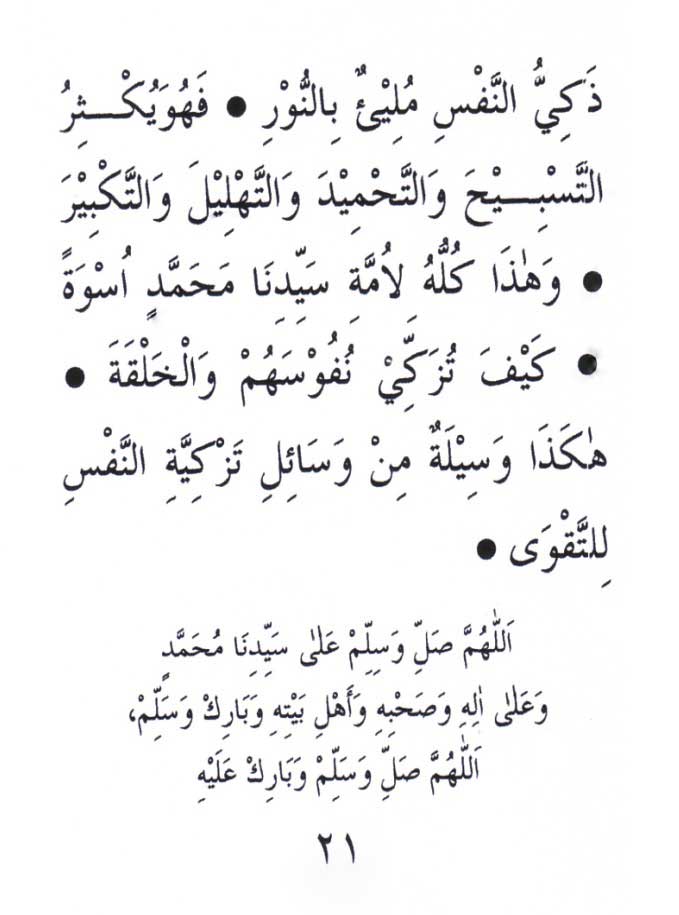 ذَكِيُّ النَّفْسِ مُلِيْئٌ بِالنُّوْرِ ● فَهُوَيُكْـــثِرُ
التَّسْبِـــيْحَ وَالتَّحْمِيْدَ وَالتَّهْلِيْلَ وَالتَّكْبِيْرَ
● وَهٰذَا كُلُّهُ لِاُمَّةِ سَيِّدِنَا مَحَمَّدٍ اُسْوَةً
● كَيْفَ تُزَكِّيْ نُفُوْسَهُمْ وَالْخَلْقَةَ ●
هٰكَذَا وَسِيْلَةٌ مِنْ وَسَائِلِ تَزْكِيَّةِ النَّفْسِ
لِلتَّقْوَى ●
اَللّٰهُمَّ صَلِّ وَسِلِّمْ عَلٰى سَيِّدِنَا مُحَمَّدٍ
وَعَلٰى اٰلِهِ وَصَحْبِهِ وَأَهْلِ بَيْتِهِ وَبَارِكْ وَسَلِّمْ،
اَللّٰهُمَّ صَلِّ وَسَلِّمْ وَبَارِكْ عَلَيْهِ
٢١